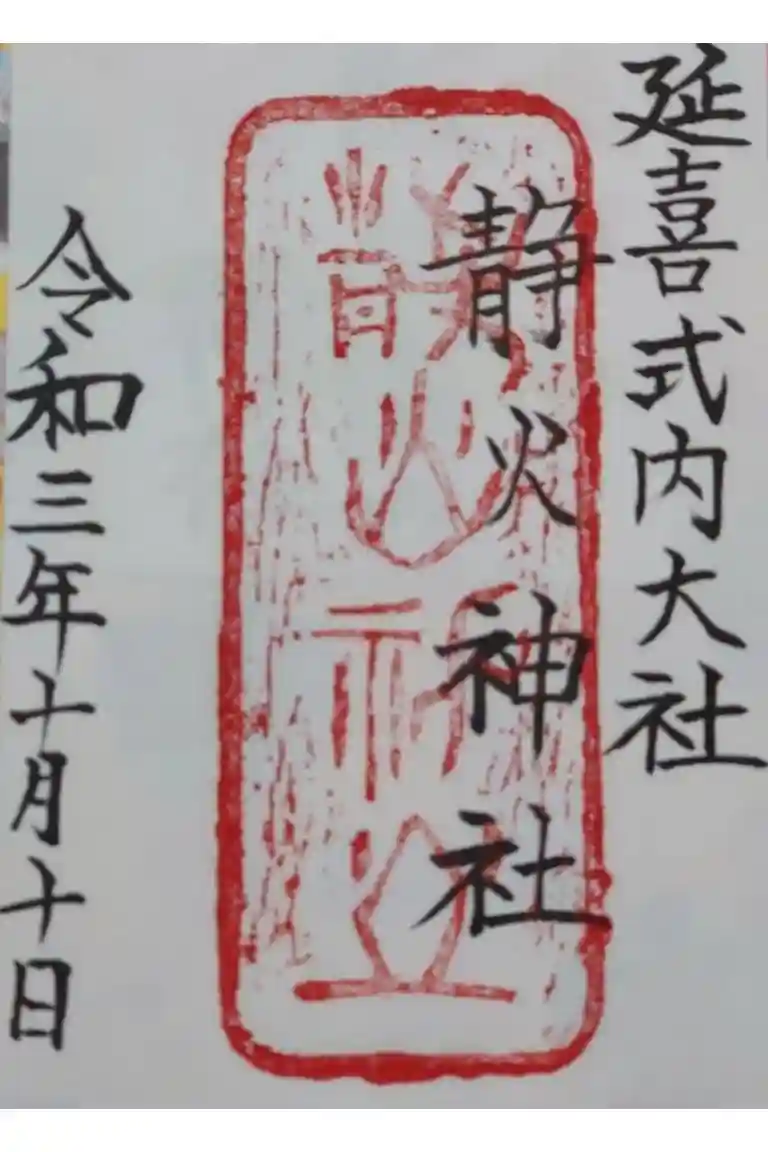 延喜式内大社
静火神社
令和三年十月十日